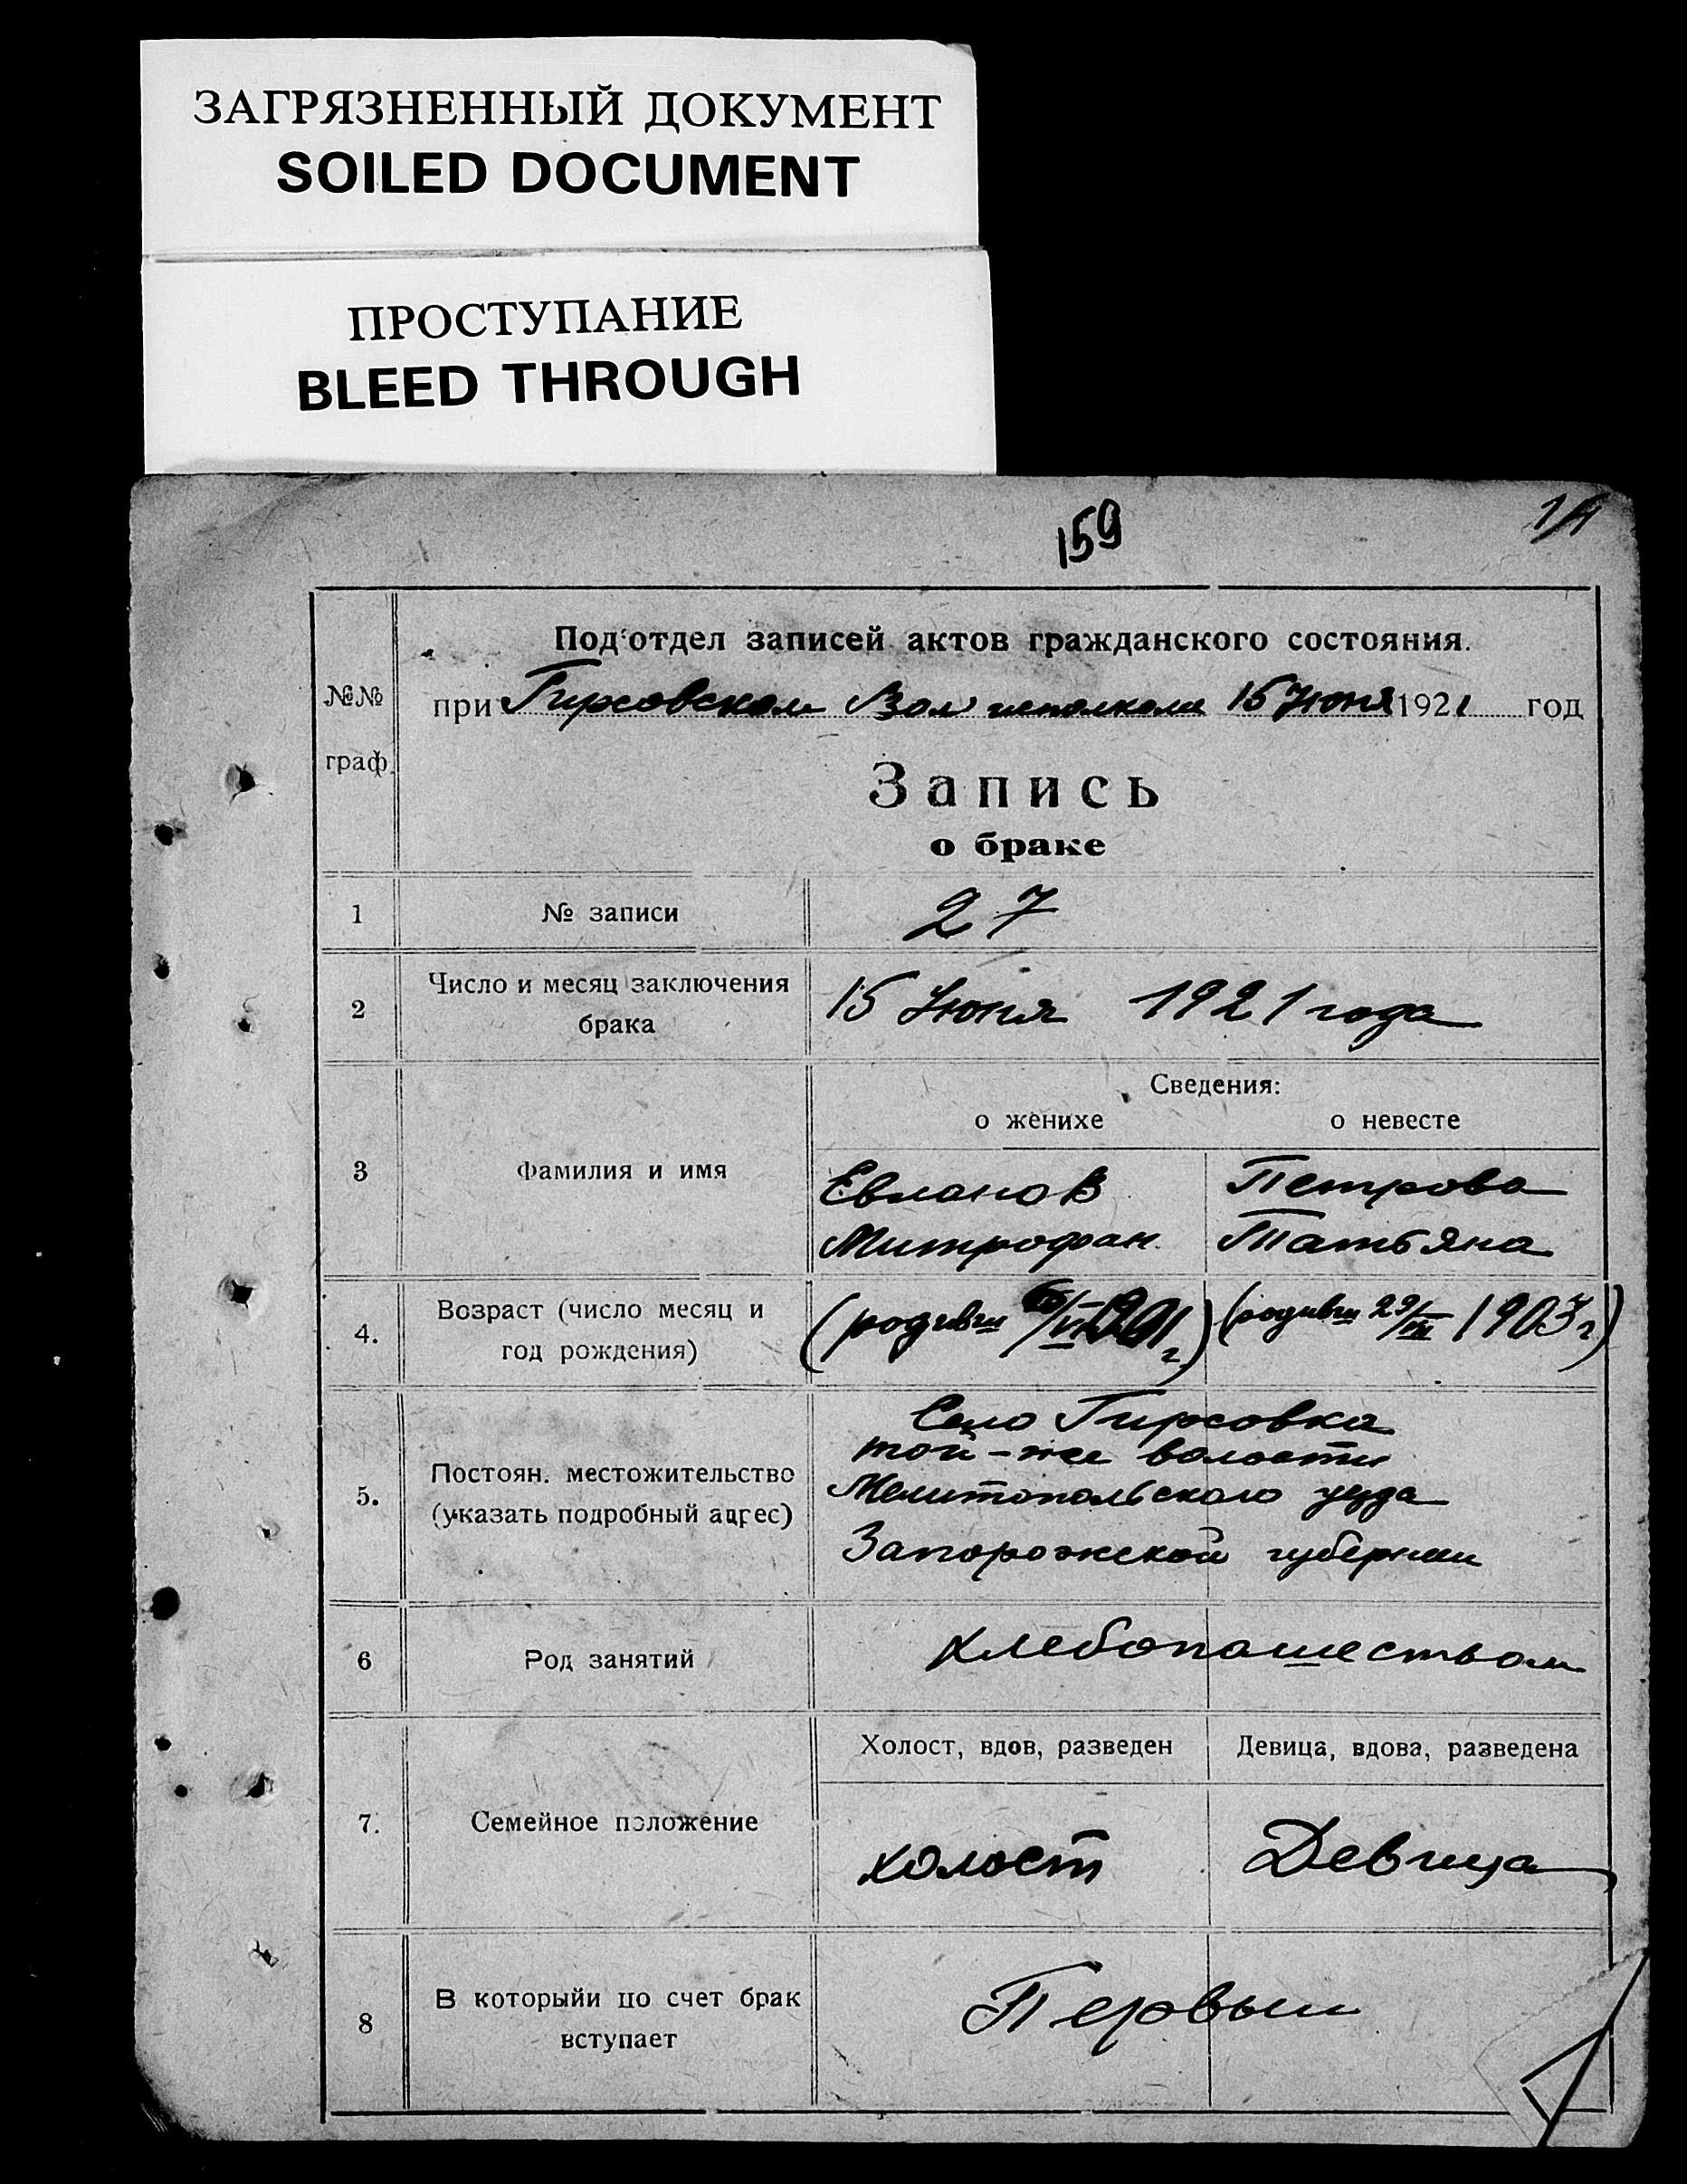 ЗАГРЯЗНЕННЫЙ ДОКУМЕНТ
SOILED DOCUMENT
ПРОСТУПАНИЕ
BLEED THROUGH
159
Под'отдел записей актов гражданского состояния.
№№
граф.
при Гирсовском Вол исполкоме 15 Июня 1921 год
Запись
о браке
1 № записи 27
2 Число и месяц заключения
брака
15 Июня 1921 года
Сведения:
о женихе о невесте
3 Фамилия и имя
Евланов Петрова
Митрофан Татьяна
4. Возраст (число месяц и
год рождения)
(родивш /VI 1901 г.) (родивш 29/VIII 1903 г.)
5. Постоян. местожительство
(указать подробный адрес)
Село Гирсовка
той-же волости
Мелитопольского уезда
Запорожской губернии
6 Род занятий хлебопашеством
Холост, вдов, разведен Девица, вдова, разведена
7. Семейное положение
холост Девица
8 В которыйи по счет брак
вступает
Первый